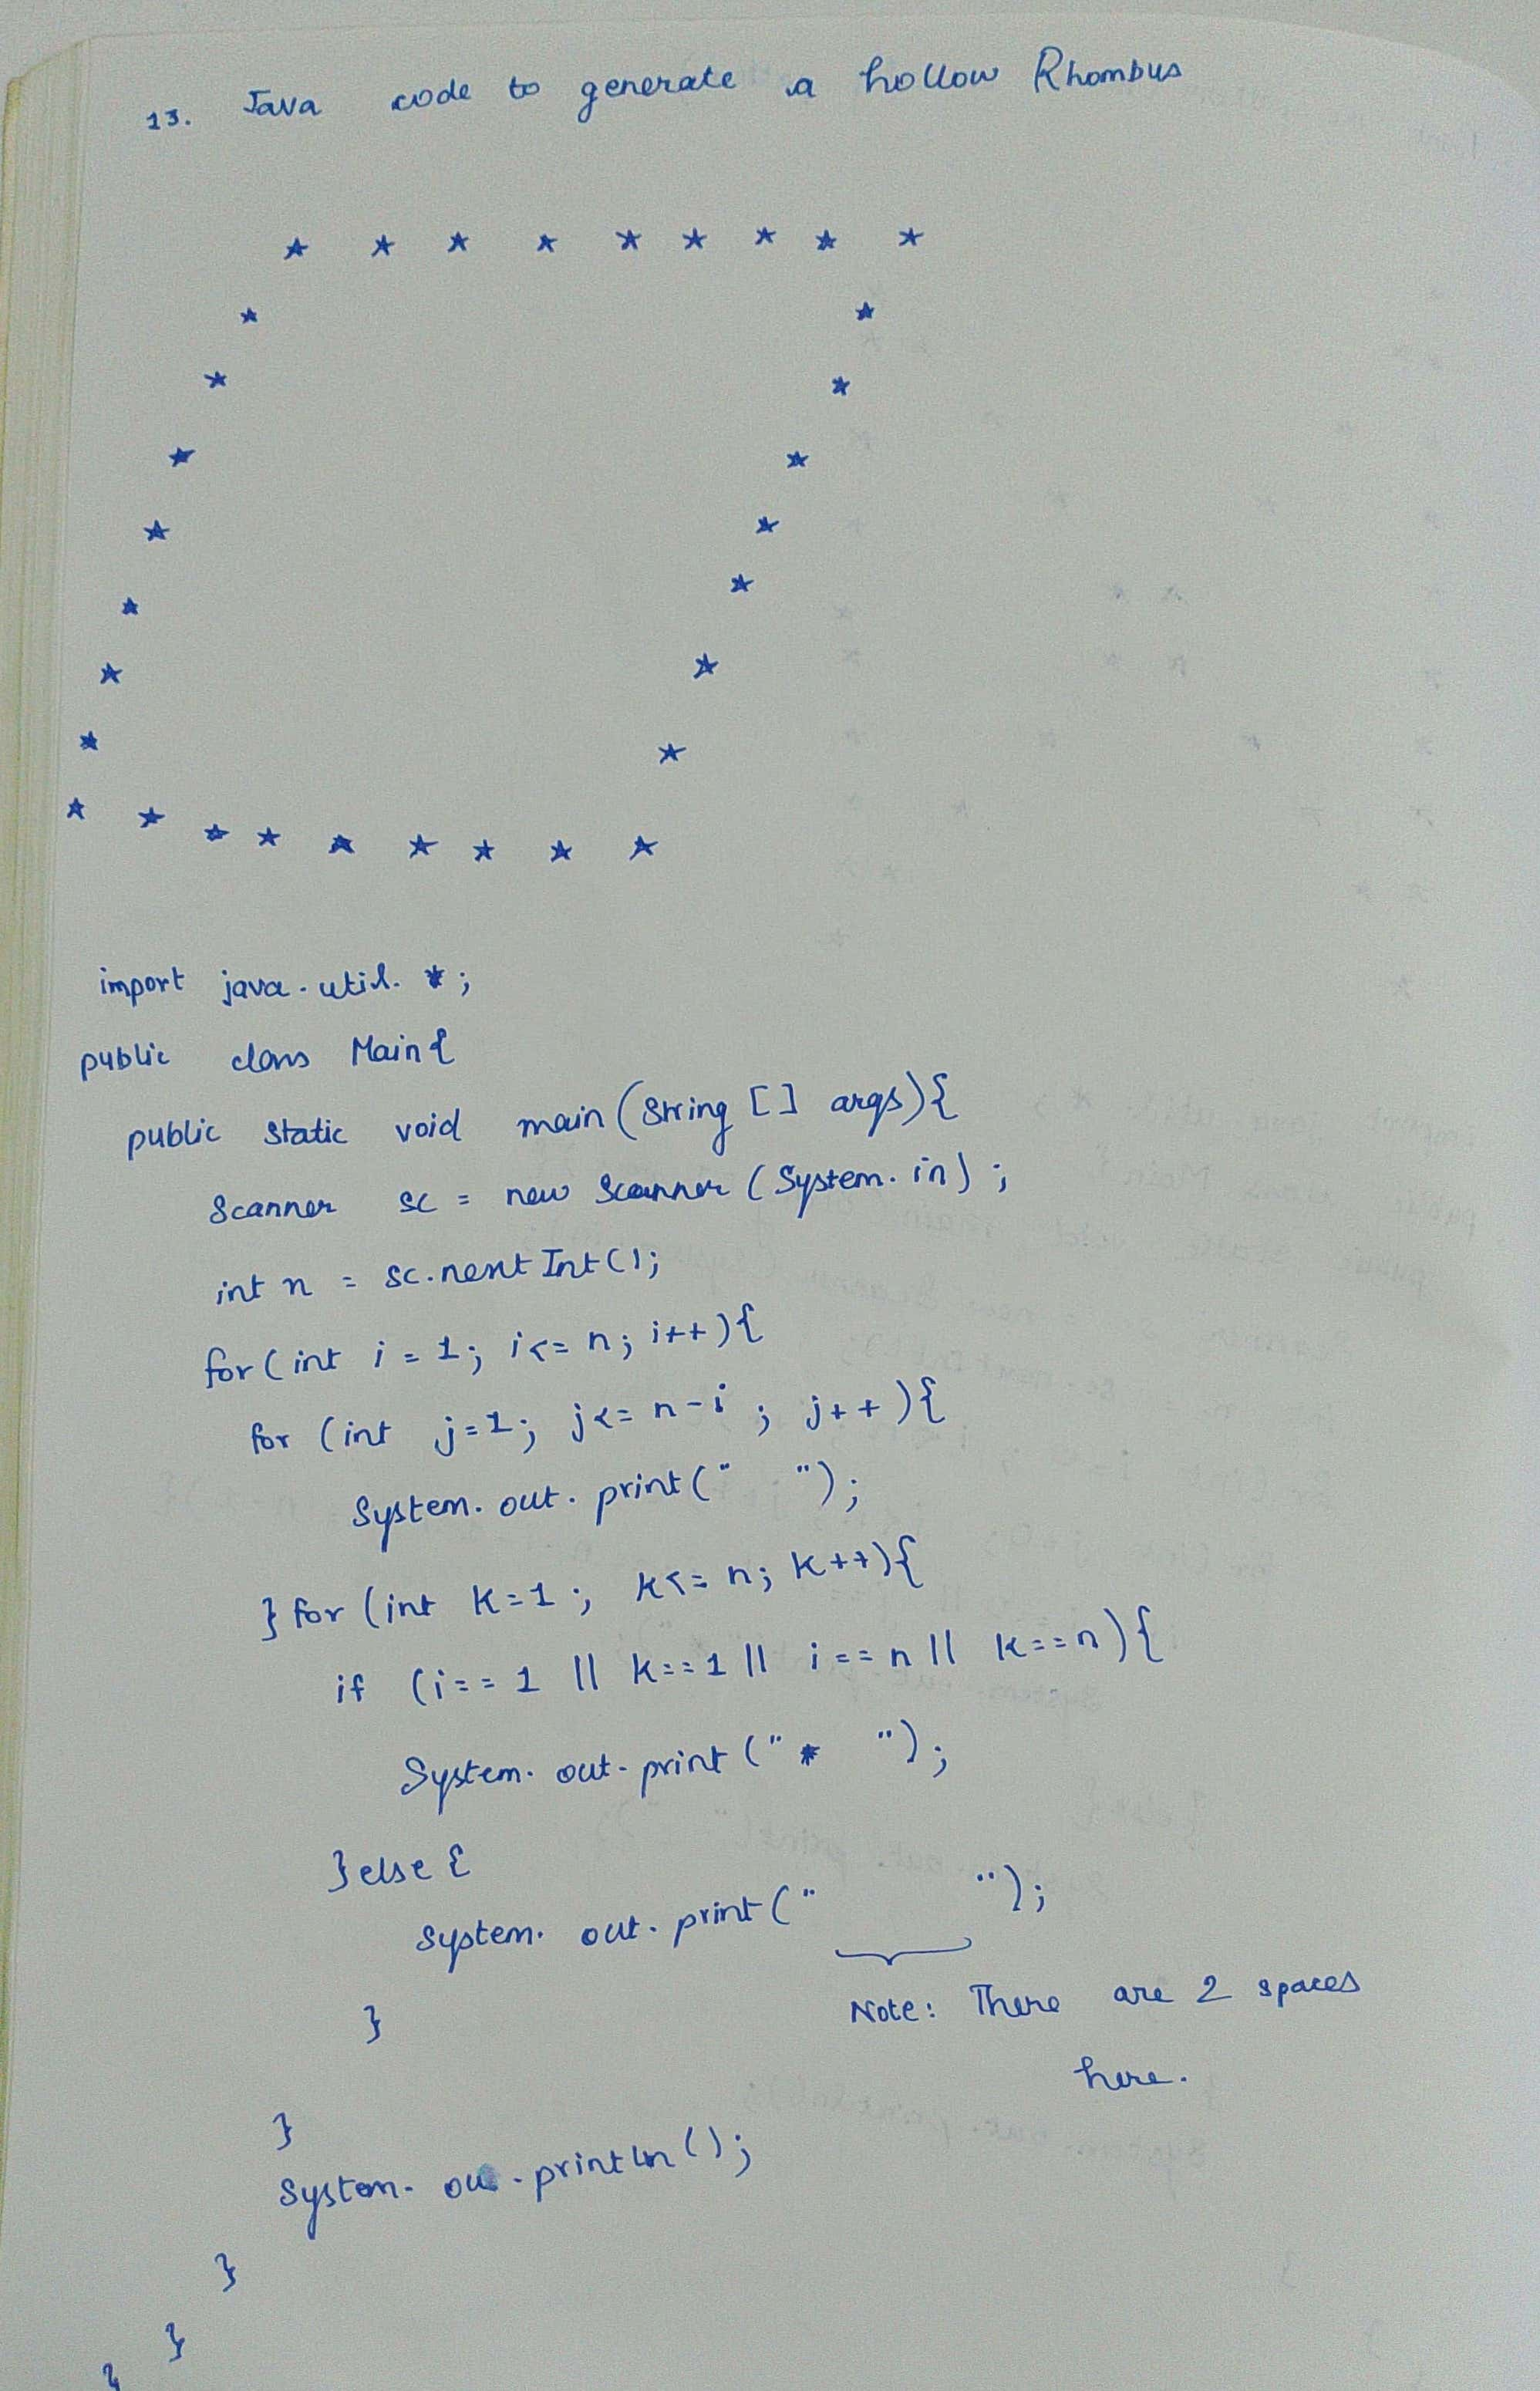 13. Java code to generate a hollow Rhombus
* * * * * * * * *
* *
* *
* *
* *
* *
* *
* *
* * * * * * * * *
import java.util.*;
public class Main{
public static void main(String [] args){
Scanner sc = new Scanner (System.in);
int n = sc.nextInt();
for(int i = 1; i<= n; i++){
for (int j=1; j<= n-i; j++){
System.out.print(" ");
} for (int k=1; k<= n; k++){
if (i==1 || k==1 || i==n || k==n){
System.out.print("* ");
}else {
System.out.print("  ");
}
Note: There are 2 spaces
here.
}
System.out.println();
}
}
}